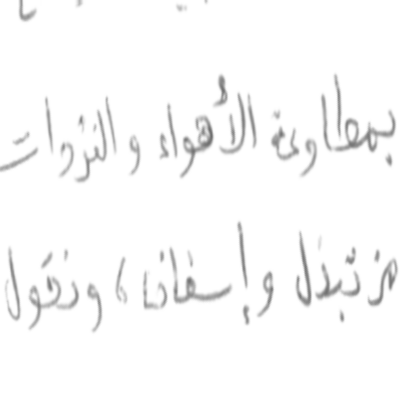 بمطاوعة الأهواء والنزوات
من تبذل وإسفاف، ونقول